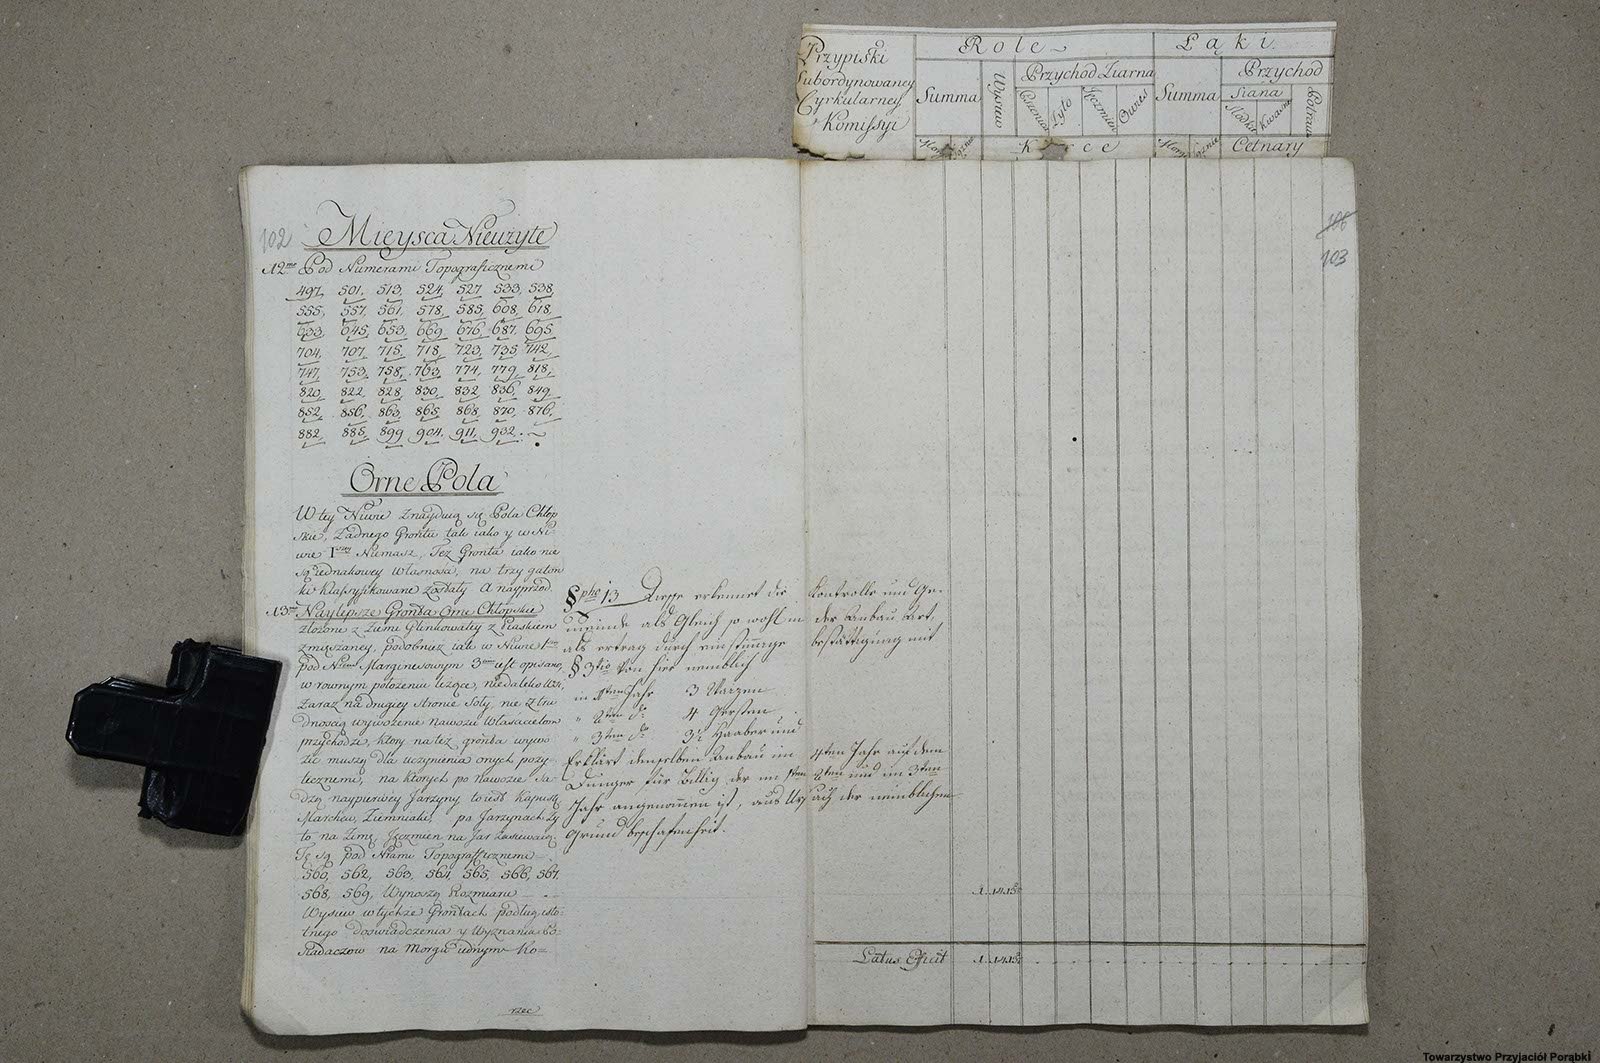 Przypiski
Subordynowaney
Cyrkularney
Komissyi
Role
Łąki
Summa
Wysiew
Przychod Ziarna
Pszenica
Żyto
Jęczmień
Owies
Summa
Przychod
Siana
Słodkie
Kwaśne
Potraw
Korce
Cetnary
102
106
103
Mieysca Nieużyte
12me Pod Numerami Topograficznemi
497, 501, 513, 524, 527, 533, 538,
555, 557, 561, 578, 585, 608, 618,
633, 645, 653, 669, 676, 687, 695
704, 707, 715, 718, 723, 735, 742,
747, 753, 758, 763, 774, 779, 818,
820, 822, 828, 830, 832, 836, 849,
852, 856, 863, 865, 868, 870, 876,
882, 885, 899, 904, 911, 932.
Orne Pola
W tey Niwie znayduią się Pola Chłop
skie, Żadnego Grontu tak iako y w Ni-
wie 1szey Niemasz, Też Gronta iako nie
są iednakowey Własności, na trzy gatun
ki klassyfikowane zostały A nayprzod
13me Naylepsze Gronta Orne Chłopskie
złożone z Ziemi Glinkowatey z Piaskiem
zmyszaney, podobnież iak w Niwie 1
pod Nrem Marginesowym 3 iest opisano,
w rownym położeniu leżące, niedaleko Wsi,
Zaraz na drugiey stronie Soły, nie z tru
dnością wywożenie nawozu Własacielom
przychodzi, ktory na też gronta wywo
zić muszą dla uczynienia onych poży-
tecznemi, na ktorych po nawozie Sa-
dzą naypierwey Jarzyny to iest Kapustę
Marchew, Ziemniaki, po Jarzynach Ży
to na Zimę, Jęczmien na Jar Zasiewaią.
Te są pod Nrami Topograficznemi
560, 562, 563, 564, 565, 566, 567,
568, 569, Wynoszą Rozmiaru
Wysiew w tychże Grontach podług isto-
tnego doswiadczenia y Wyznania Po-
siadaczow na Morgu iednym Ko=
rzec
§phe 13 Diese erkennet die Kontrolle und Ge-
meinde als Gleich so wohl in der Anbau Art,
als ertrag durch einstimmige bestättigung mit
§ 3tio von hier nemblich
im 1ten Jahr 3 Warzen
" 2ten do 4 Gersten
" 3ten do 3 Haaber und
Erklärt denselben Anbau im 4ten Jahr auf dem
Dunger für Billig der im 1ten 2ten und im 3ten
Jahr angenommen ist, aus Ursach der nemblichen
Grund beschafenheit.
Latus Efficit
Towarzystwo Przyjaciół Porąbki